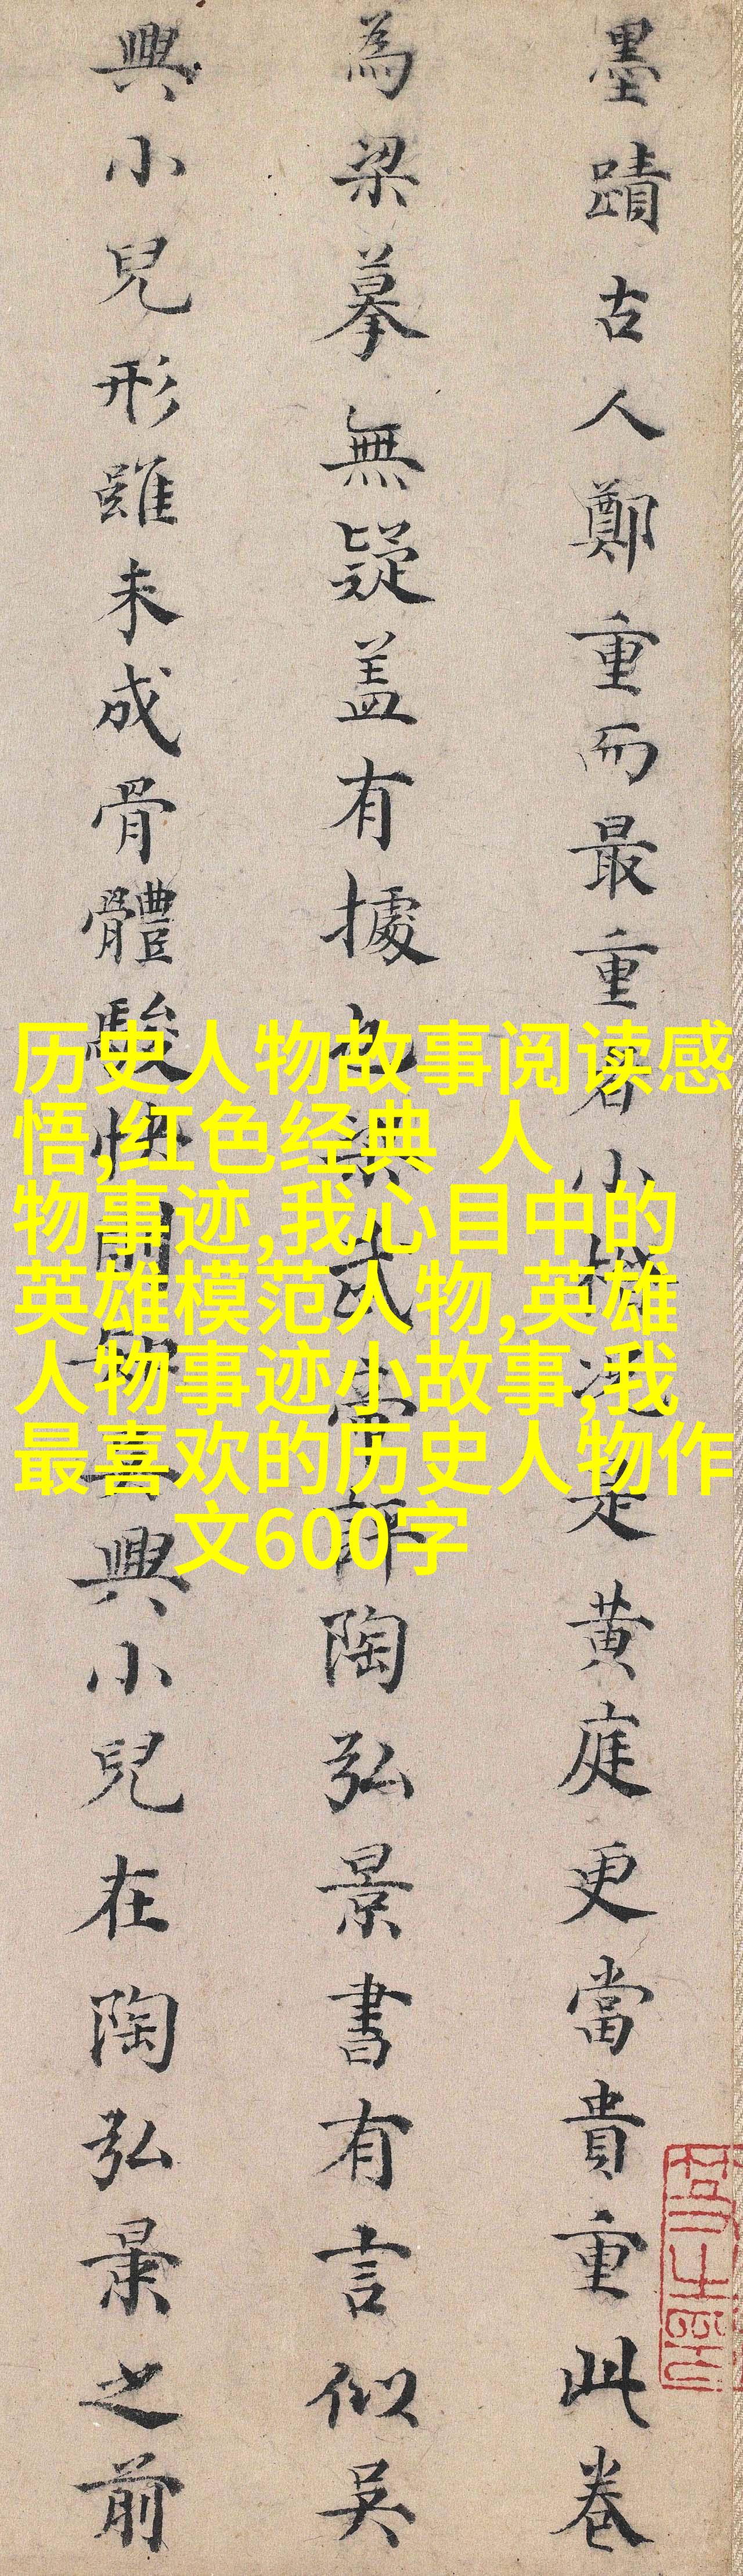 墨蹟古人鄭重而最重者小楷況是黄庭更當貴重此卷
為梁摹無疑盖有據也梁武嘗評陶弘景書有言似吳
興小兒形雖未成骨體駿快吳興小兒在陶弘景之前
历史人物故事阅读感
悟,红色经典 人
物事迹,我心目中的
英雄模范人物,英雄
人物事迹小故事,我
最喜欢的历史人物作
文600字